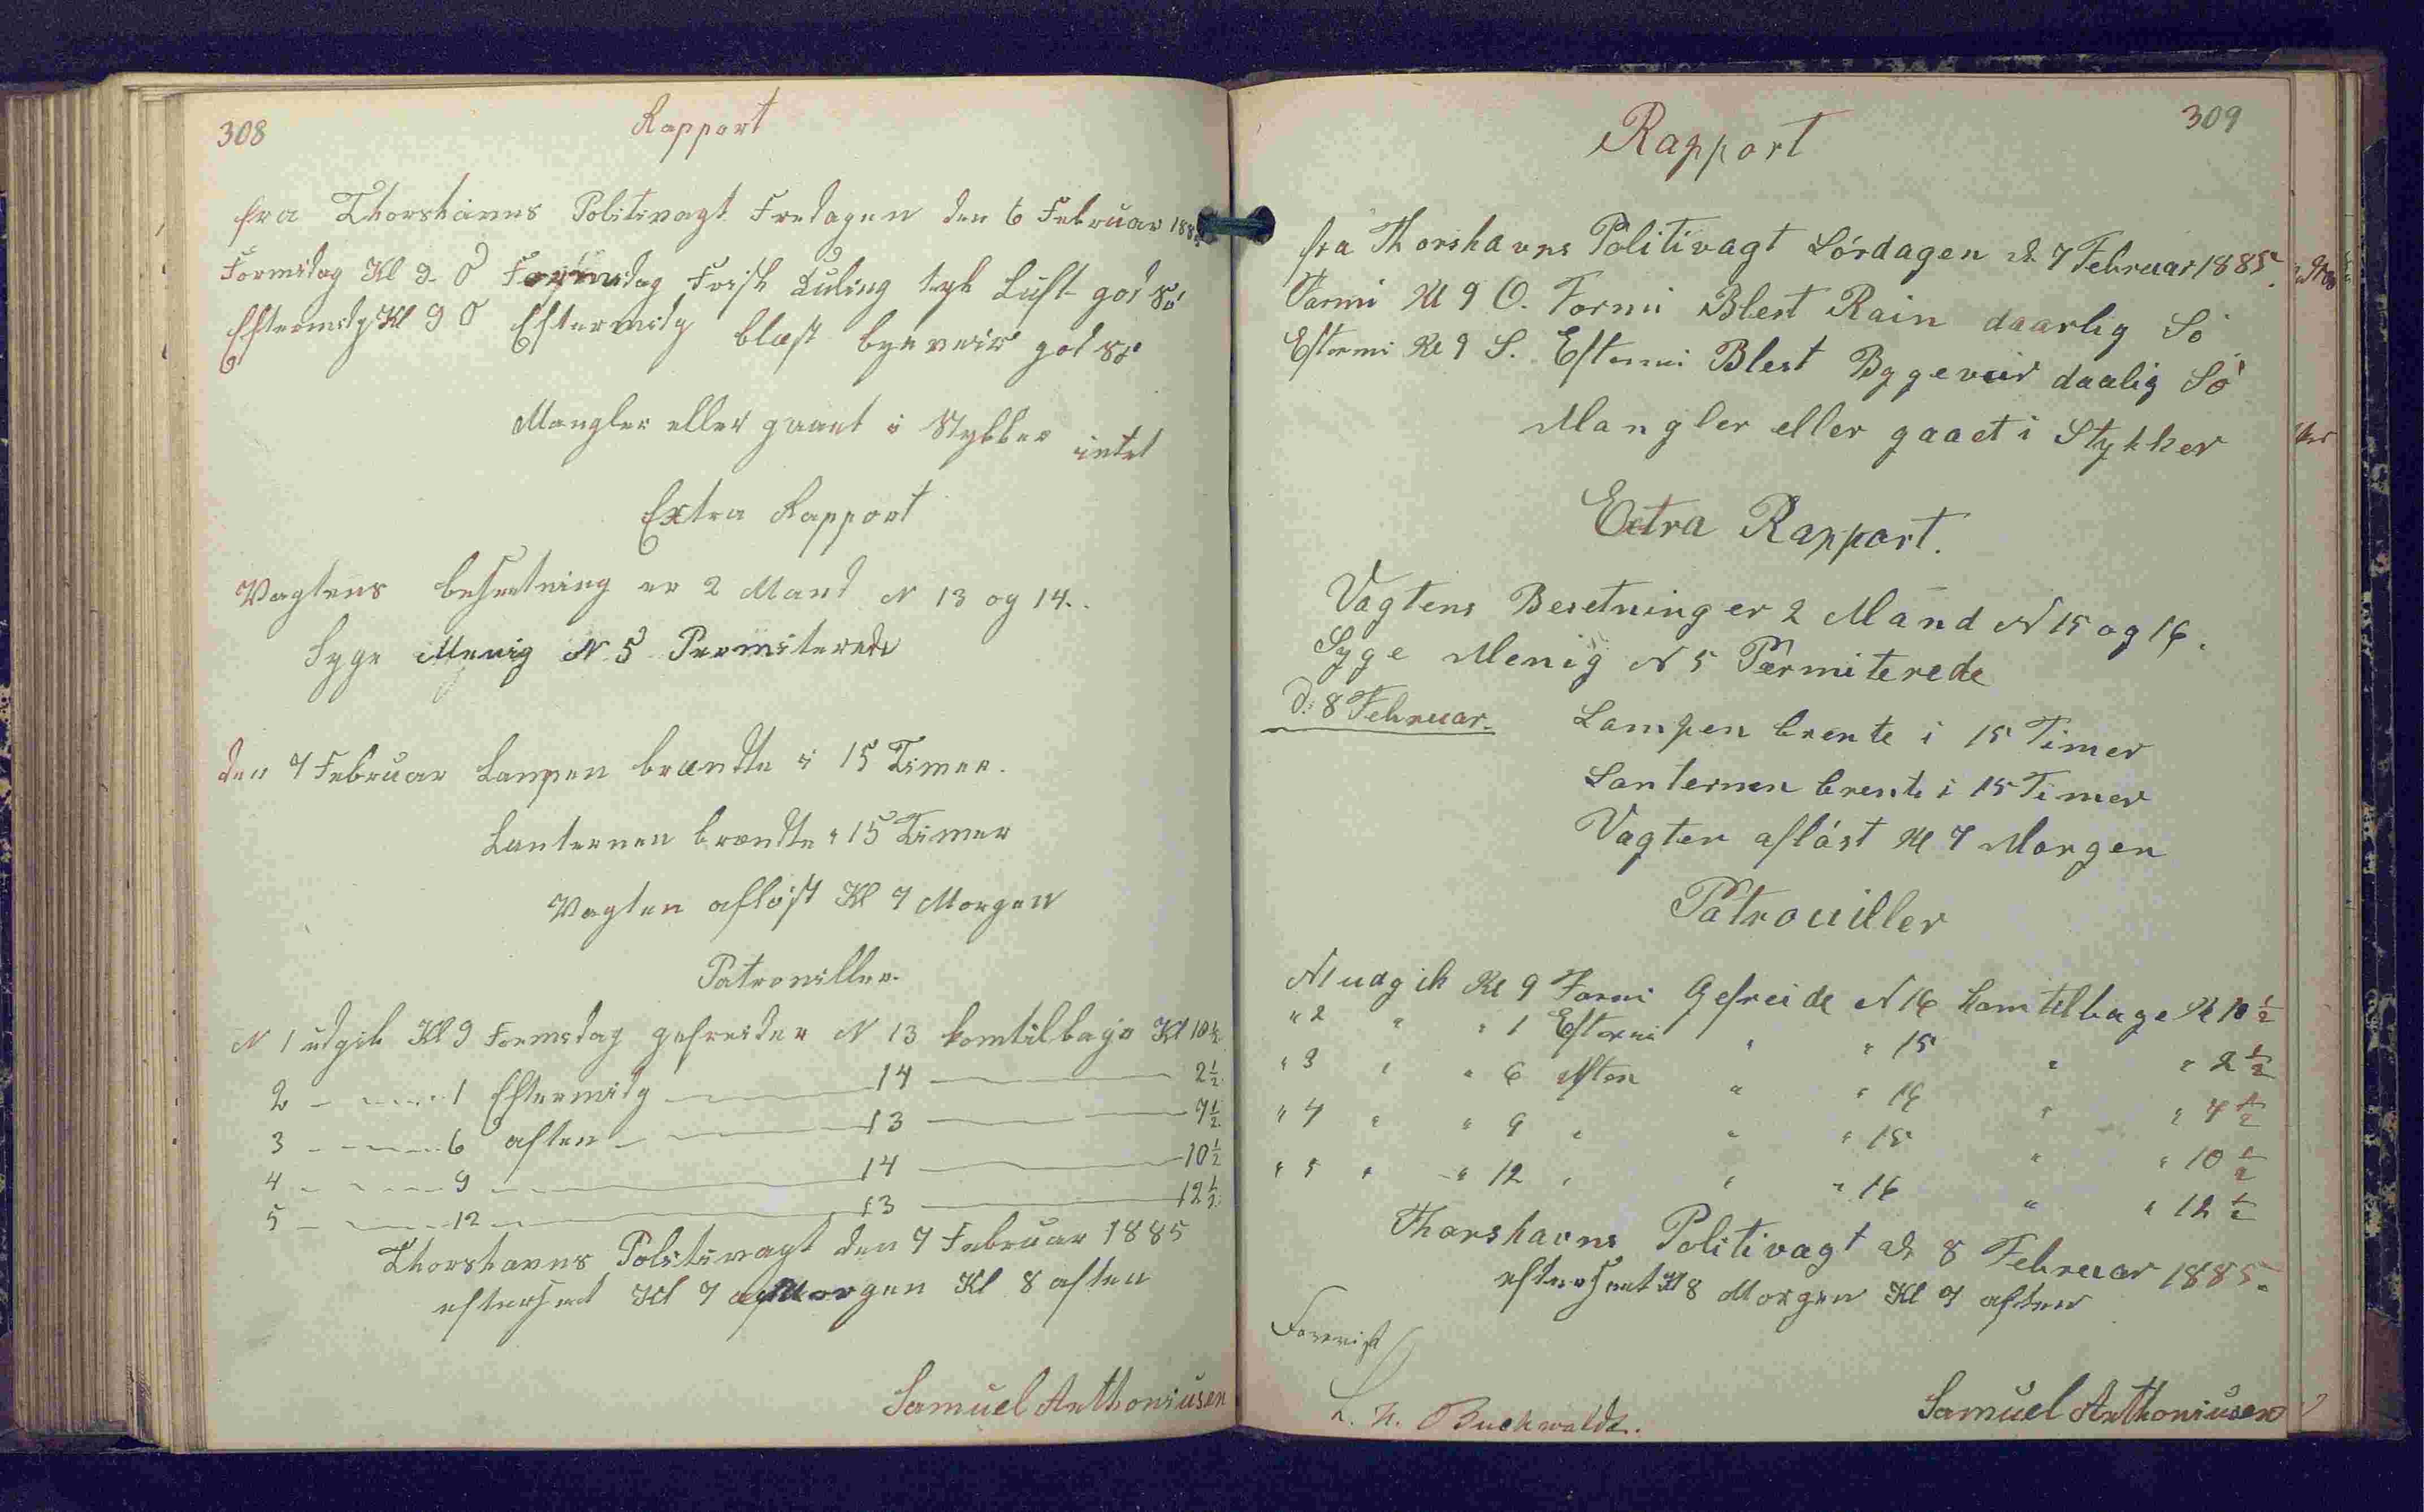 308
Rapport
fra Thorshavns Politivagt Fredagen den 6 Februar 1885
Formidag Kl 9 O Formidag Frisk Kuling tyk Luft god Sö
Eftermidg Kl 9 O Eftermidg blæst byeveir god Sö
Mangler eller gaaet i Stykker intet
Extra Rapport
Vagtens besætning er 2 Mand N 13 og 14.
Syge Menig N 5 Permiterede
den 7 Februar Lampen brændte i 15 Timer.
Lanternen brændte i 15 Timer
Vagten afløst Kl 7 Morgen
Patrouiller.
N 1 udgik Kl 9 Formidag gefreider N 13 kom tilbage Kl 10½
2 — — 1 Eftermidg — 14 — 2½
3 — — 6 aften — 13 — 7½
4 — — 9 — 14 — 10½
5 — — 12 — 13 — 12½
Thorshavns Politivagt den 7 Februar 1885
efterseet Kl 7 Morgen Kl 8 aften
Samuel Anthoniusen
309
Rapport
fra Thorshavns Politivagt Lördagen d 7 Februar 1885.
Formi Kl 9 O. Formi Blest Rain daarlig Sö
Eftermi Kl 9 S. Eftermi Blest Byggeveir daalig Sö
Mangler eller gaaet i Stykker
Extra Rapport.
Vagtens Besetning er 2 Mand N 15 og 16.
Syge Menig N 5 Permiterede
d. 8 Februar. Lampen brente i 15 Timer
Lanternen brente i 15 Timer
Vagten aflöst Kl 7 Morgen
Patrouiller
N 1 udgik Kl 9 Formi Gefreide N 16 kom tilbage Kl 10 ½
" 2 " " 1 Eftermi " " 15 " " 2 ½
" 3 " " 6 Aften " " 16 " " 7 ½
" 4 " " 9 " " " 15 " " 10 ½
" 5 " " 12 " " " 16 " " 12 ½
Thorshavns Politivagt d 8 Februar 1885.
efterseet Kl 8 Morgen Kl 7 aften
Forevist
Buchwaldt.
Samuel Anthoniusen